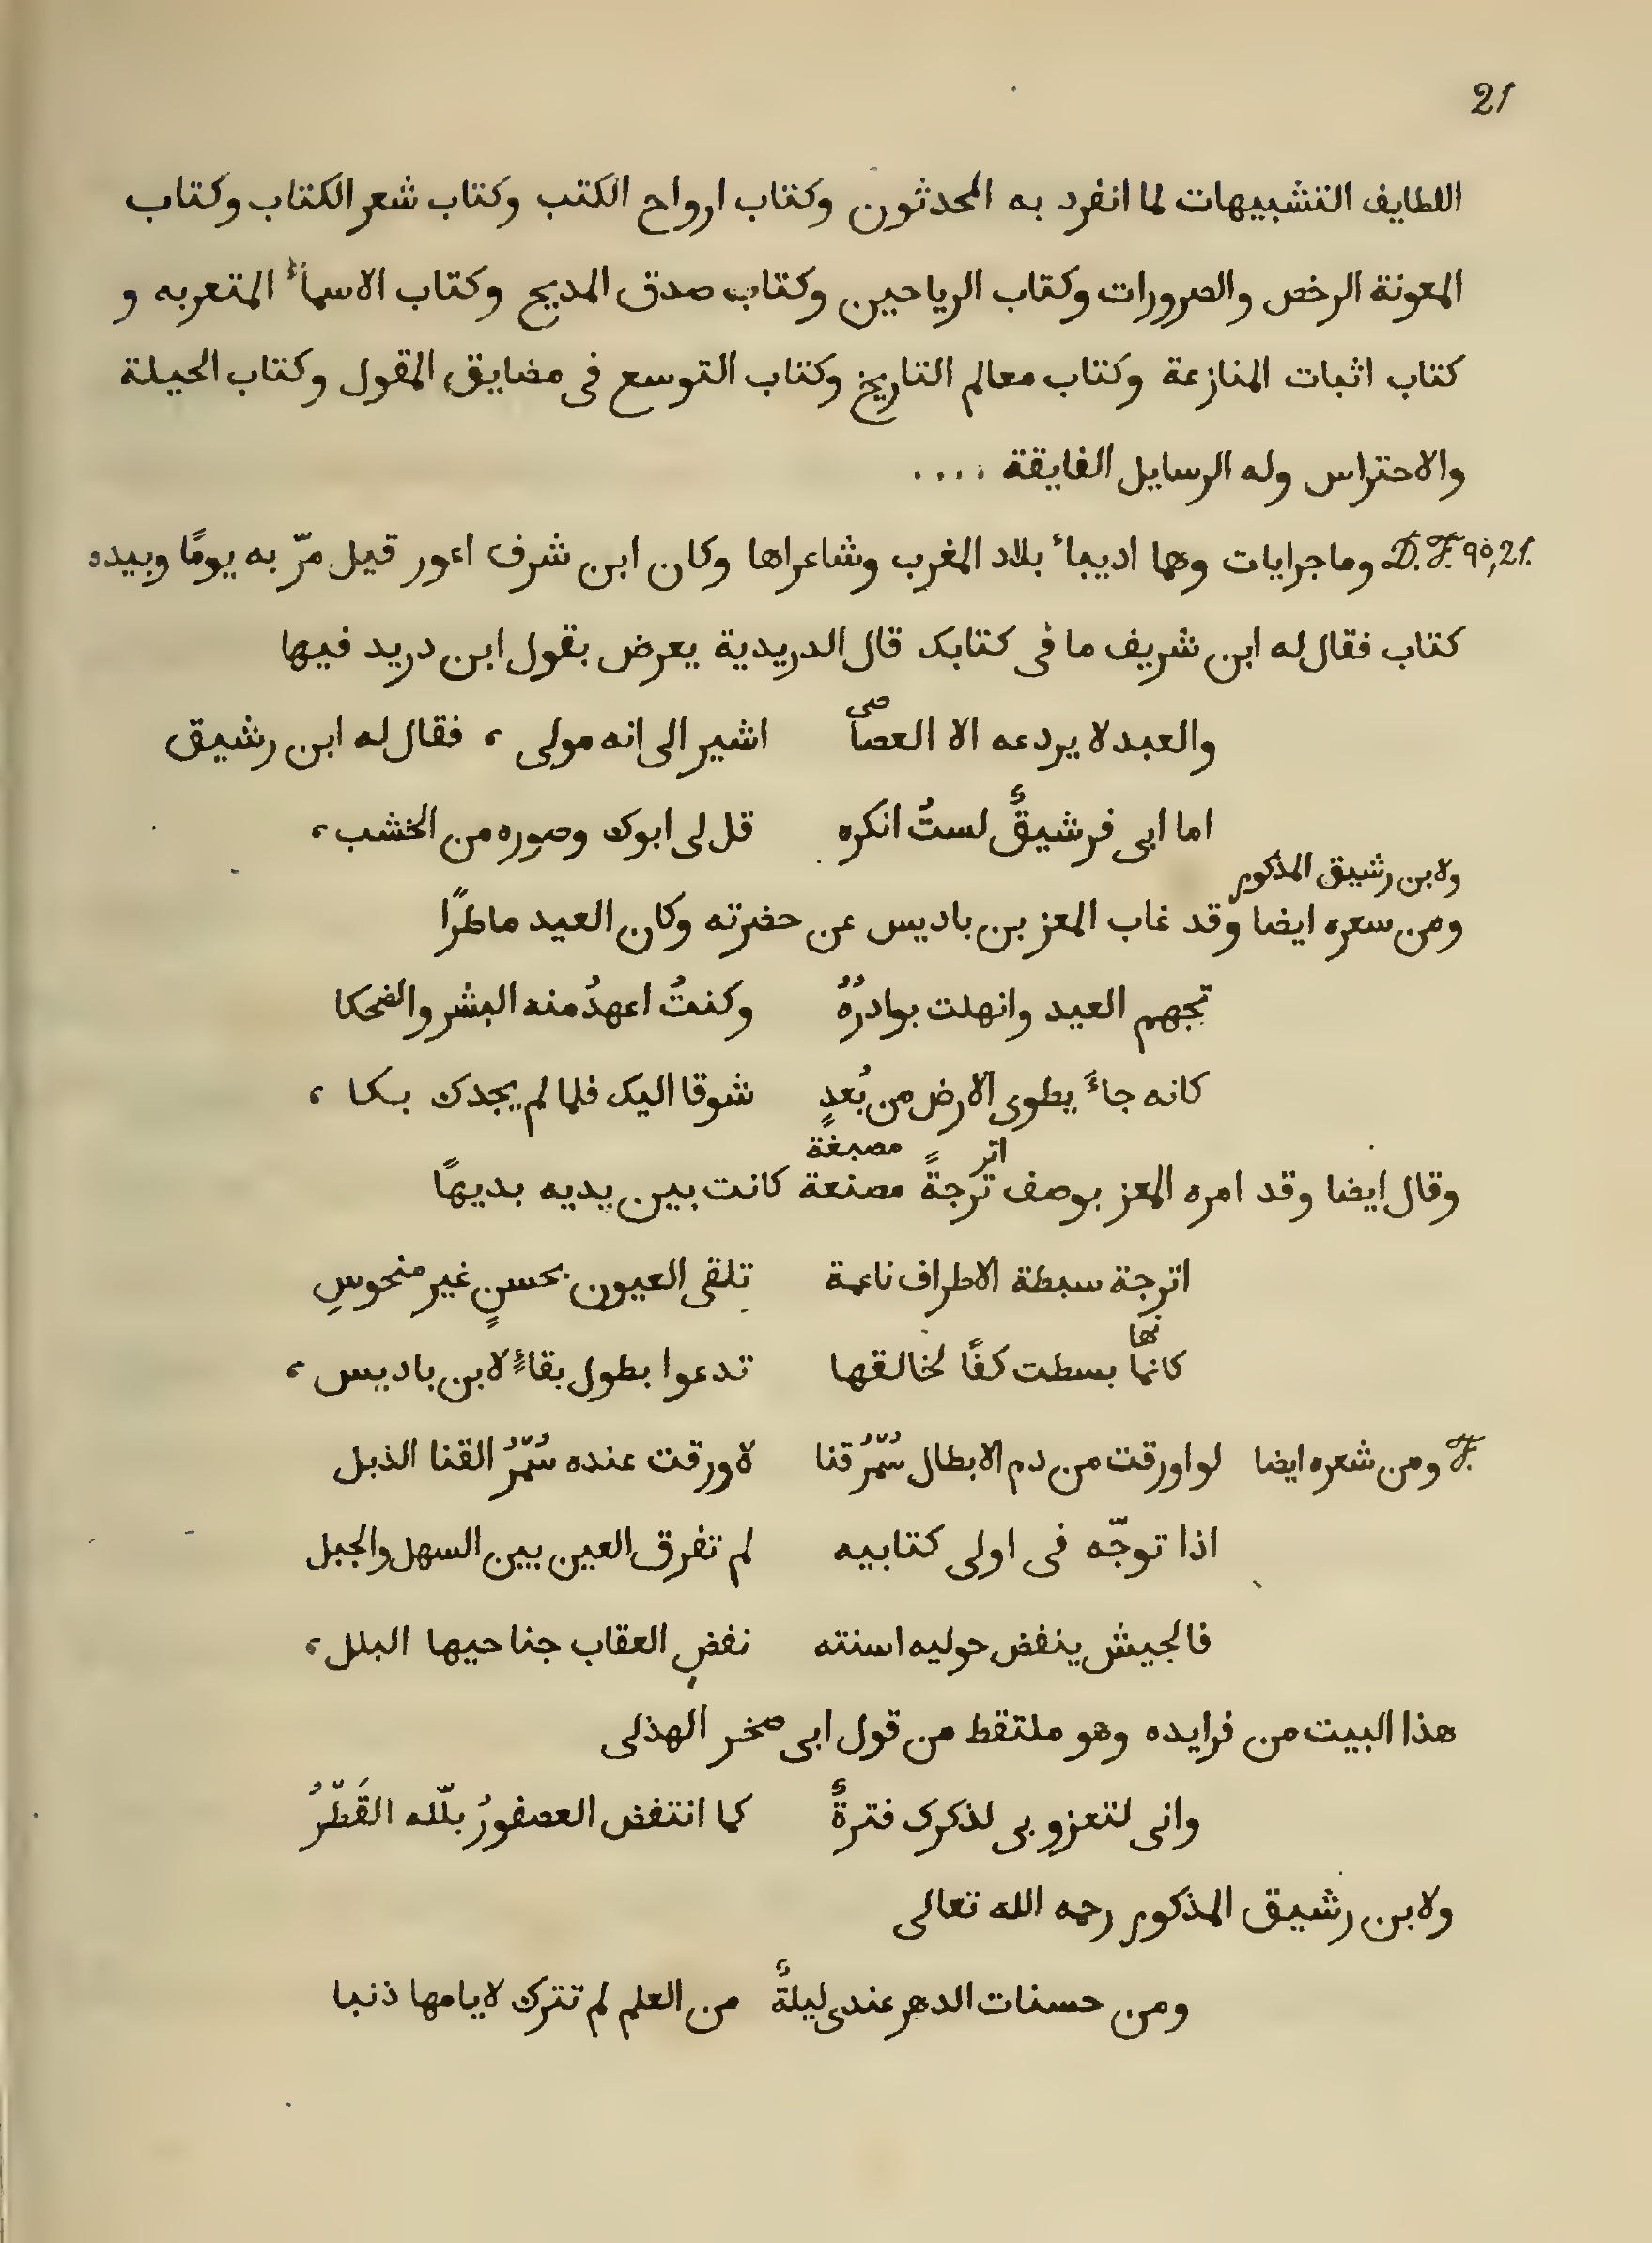 21
اللطايف التشبيهات لما انفرد به المحدثون وكتاب ارواح الكتب وكتاب شعر الكتاب وكتاب
المعونة الرخص والصرورات وكتاب الرياحين وكتاب صدق المديح وكتاب الاسمأ المتعربه و
كتاب اثبات المنازعة وكتاب معالم التاريخ وكتاب التوسع فى مضايق المقول وكتاب الحيلة
والاحتراس وله الرسايل الفايقة ....
D. F. 90,21. وماجرايات وهما اديباء بلاد المغرب وشاعراها وكان ابن شرف اعور قيل مرّ به يومًا وبيده
كتاب فقال له ابن شريف ما فى كتابك قال الدريدية يعرض بقول ابن دريد فيها
والعبد لا يردعه الا العصا صى اشير الى انه مولى ، فقال له ابن رشيق
اما ابى فرشيقٌ لستُ انكره قل لى ابوك وصوره من الخشب ،
ولابن رشيق المذكور
ومن سعره ايضا وقد غاب المعز بن باديس عن حضرته وكان العيد ماطرًا
تجهم العيد وانهلت بوادرُهُ وكنتُ اعهدُ منه البشر والضحكا
كانه جاءَ يطوى الارض من بُعدٍ شوقا اليك فلما لم يجدك بكا ،
اتر مصبغة
وقال ايضا وقد امره المعز بوصف ترجةً مصنعة كانت بين يديه بديهًا
اترجة سبطة الاطراف ناعمة تلقى العيون بحسنٍ غير منحوسِ
نها
كانما بسطت كفًا لخالقها تدعوا بطول بقاءٌ لابن باديس ،
F. ومن شعره ايضا لو اورقت من دم الابطال سُمّرُ قنا لاورقت عنده سُمّرُ القنا الذبل
اذا توجّه فى اولى كتابيه لم تفرق العين بين السهل والجبل
فالجيش ينفض حوليه اسنته نفضِ العقاب جناحيها البلل ،
هذا البيت من فرايده وهو ملتقط من قول ابى صخر الهذلى
وانى لتعزو بى لذكرك فترةٌ كما انتفض العصفورُ بلّله القَطّرُ
ولابن رشيق المذكور رحمه الله تعالى
ومن حسنات الدهر عندى ليلةٌ من العلم لم تترك لايامها ذنبا